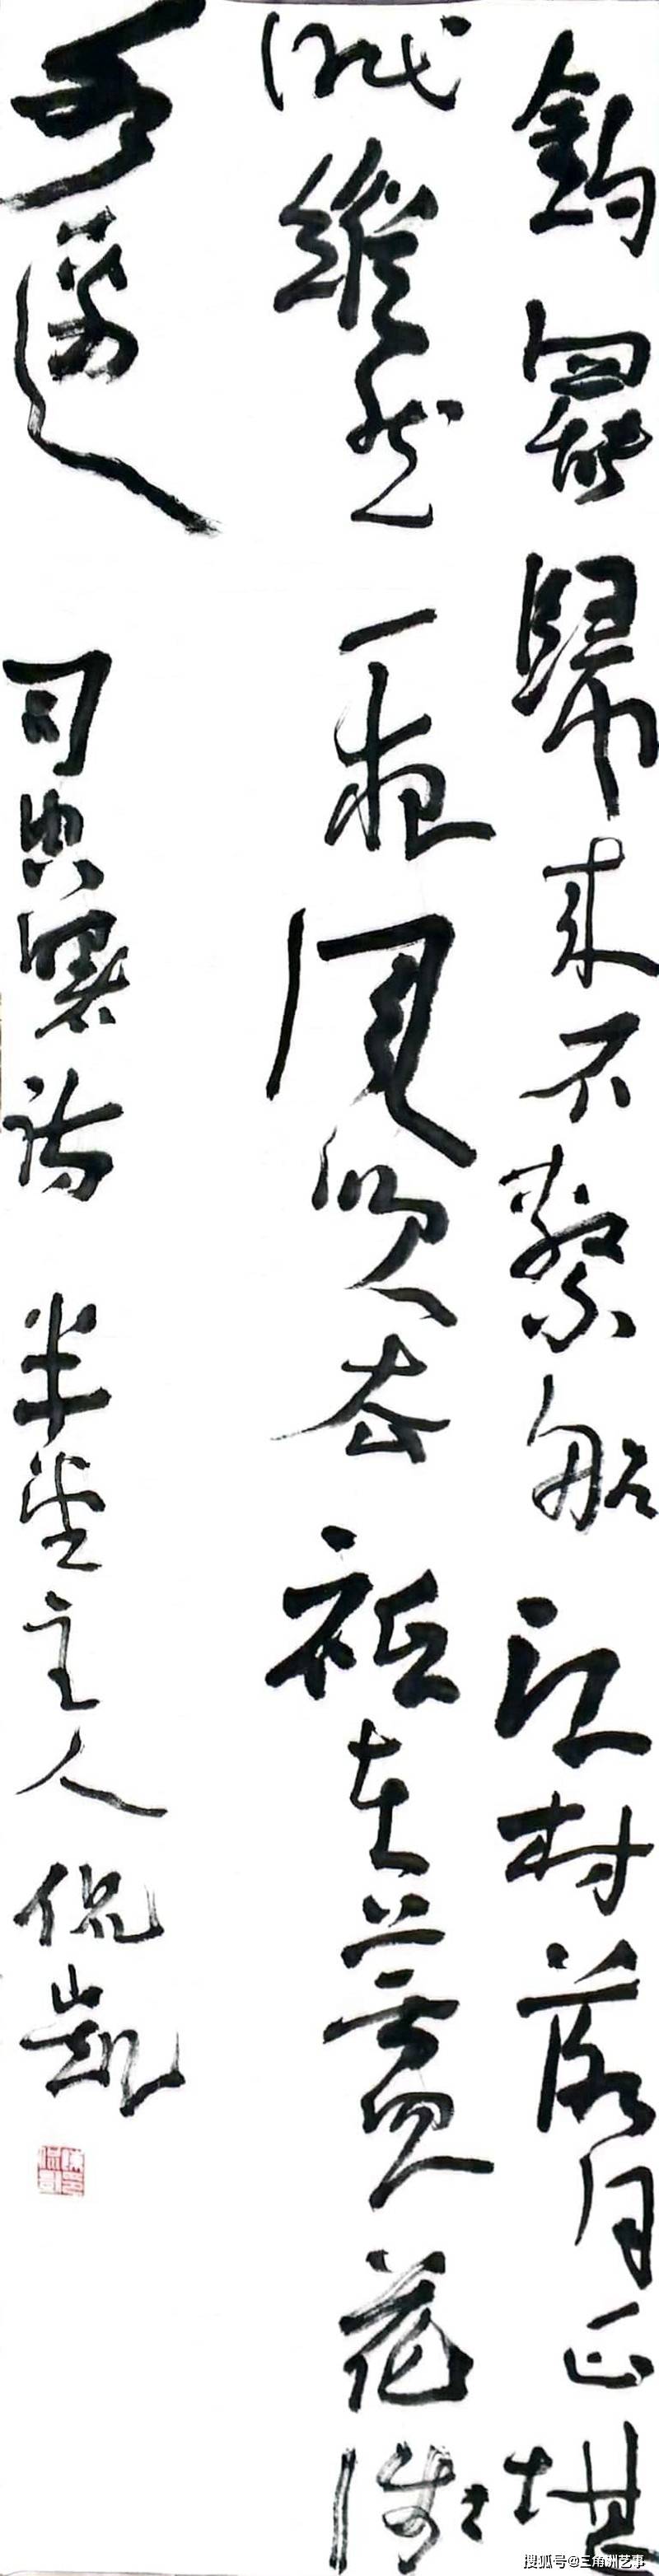 釣罷歸來不繫船江村落月正堪
眠縱然一夜風吹去祇在蘆花淺
水邊 司空曙詩 半主人侃凱
搜狐号@三角洲艺事